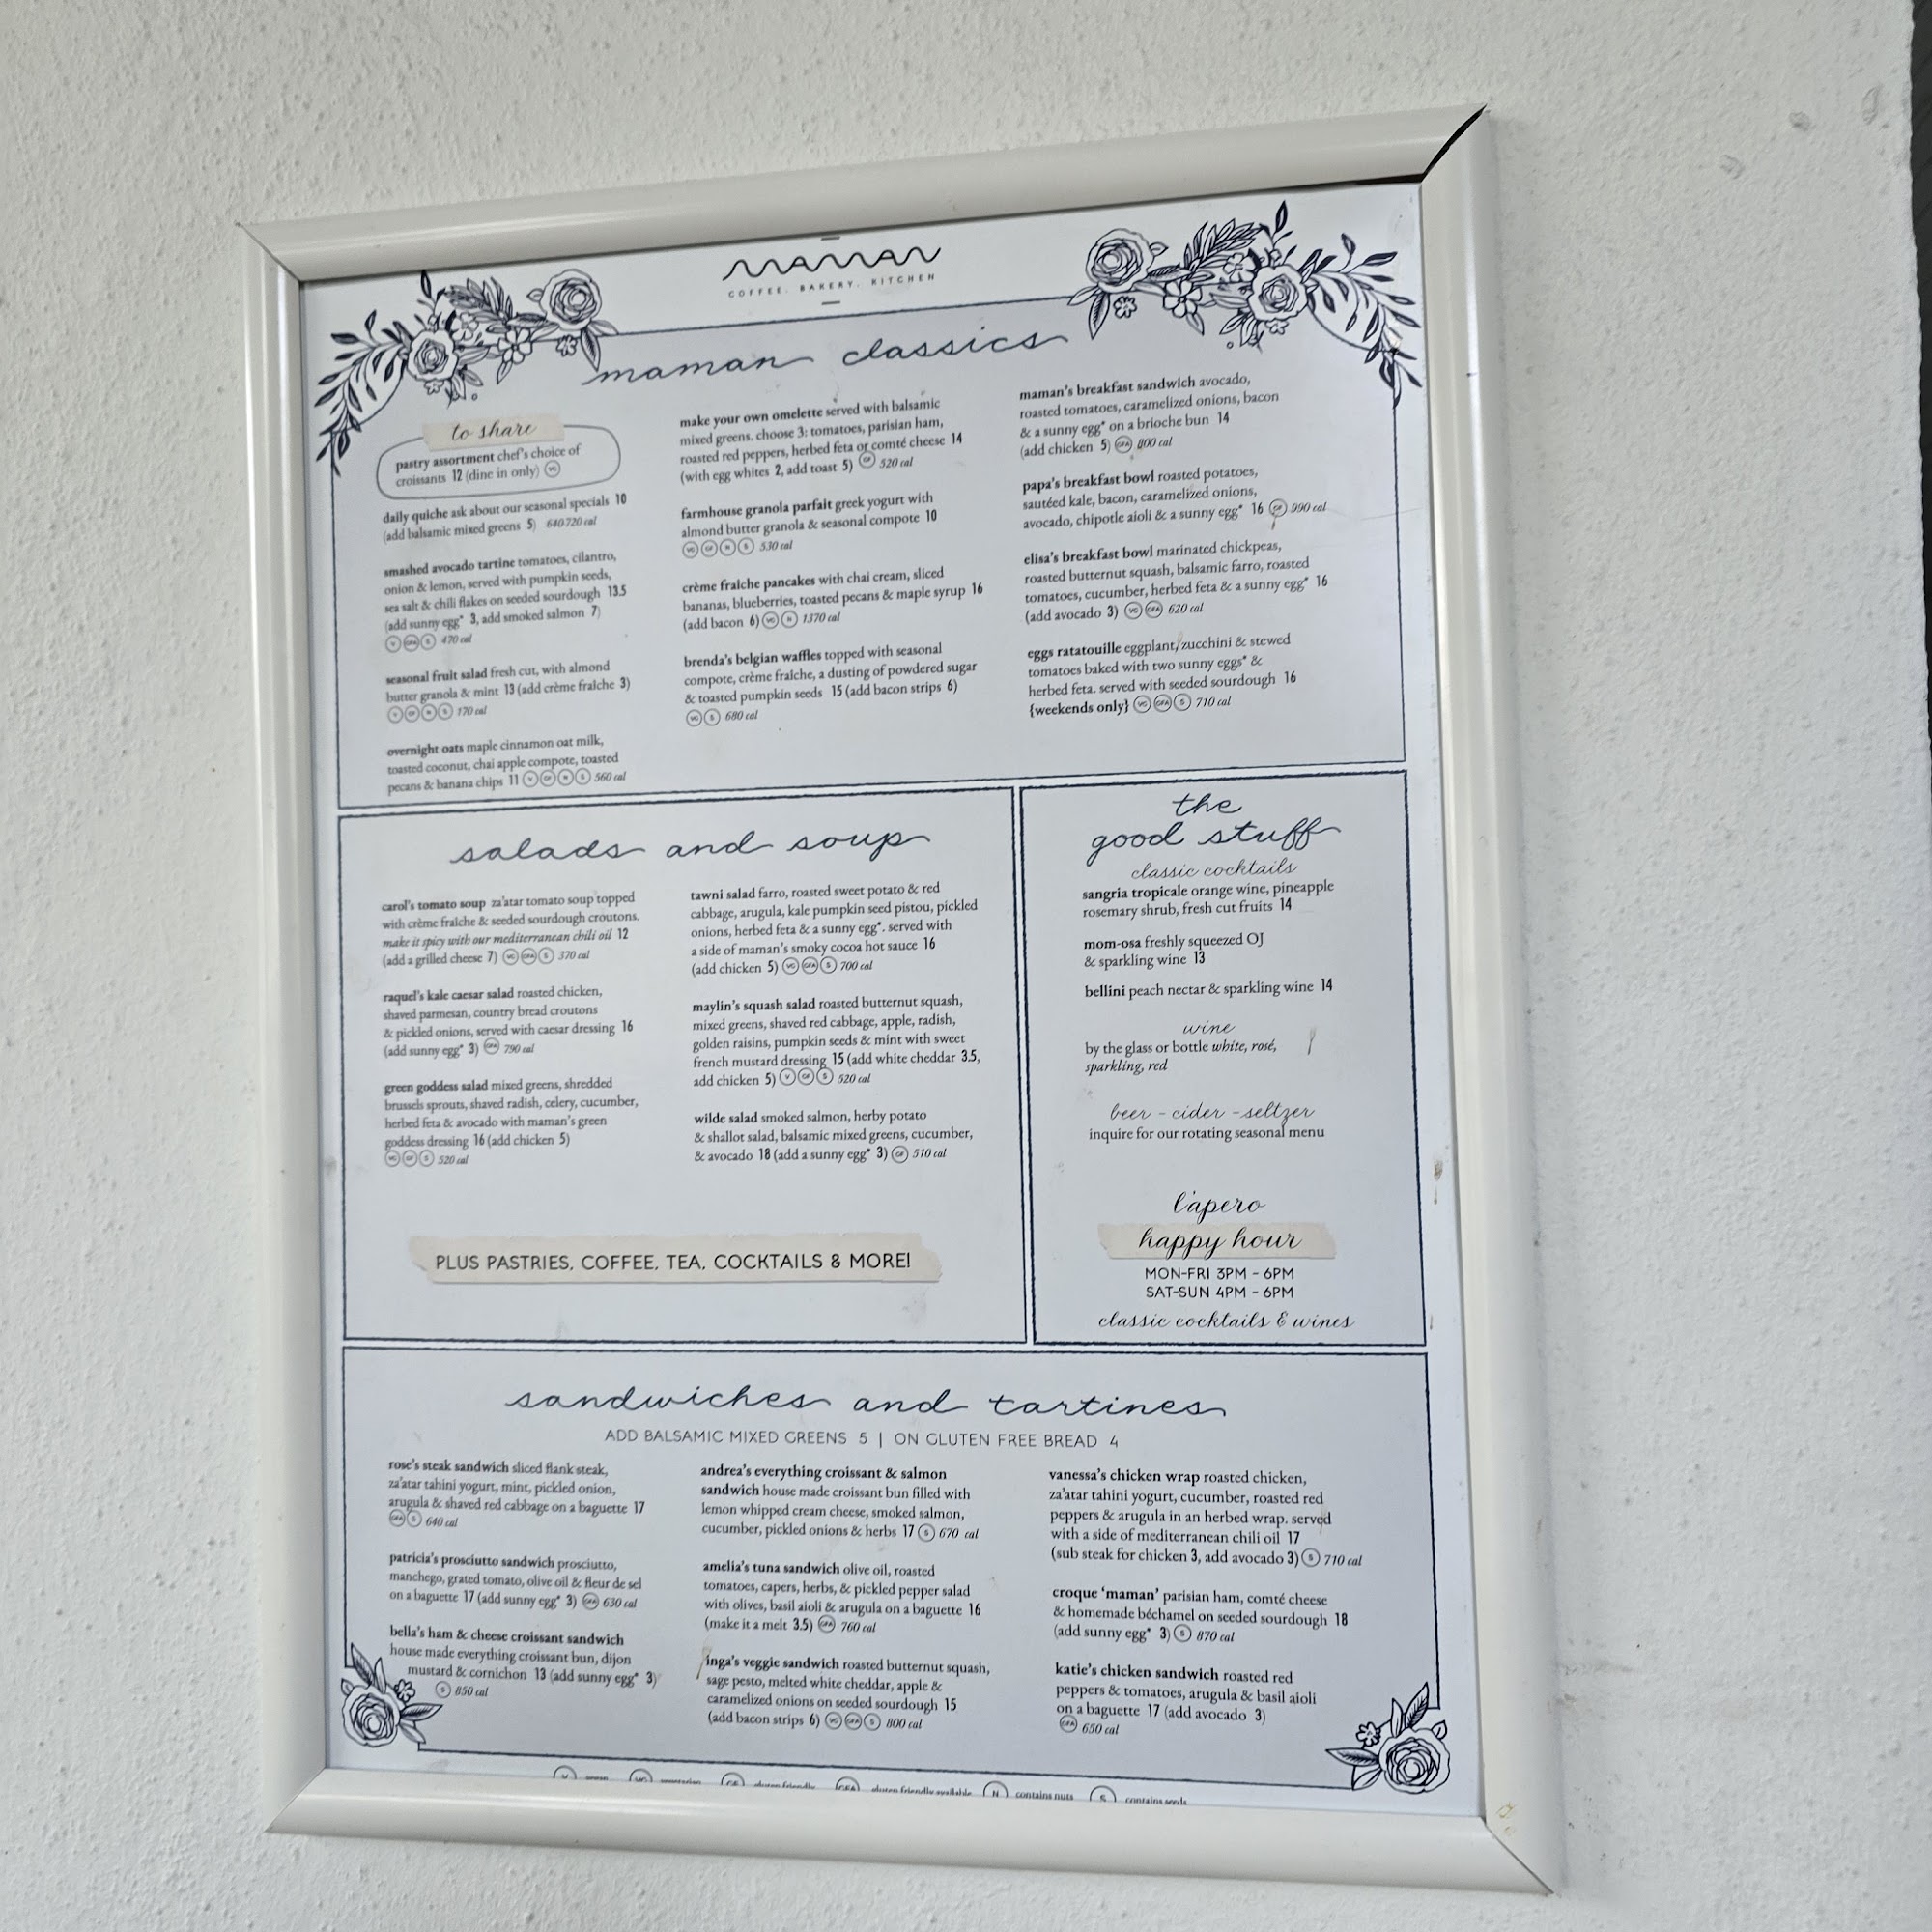 maman
COFFEE. BAKERY. KITCHEN
maman classics
to share
pastry assortment chef's choice of
croissants 12 (dine in only) VG
daily quiche ask about our seasonal specials 10
(add balsamic mixed greens 5) 640 720 cal
smashed avocado tartine tomatoes, cilantro,
onion & lemon, served with pumpkin seeds,
sea salt & chili flakes on seeded sourdough 13.5
(add sunny egg* 3, add smoked salmon 7)
V GFA S 470 cal
seasonal fruit salad fresh cut, with almond
butter granola & mint 13 (add crème fraîche 3)
V GF N S 170 cal
overnight oats maple cinnamon oat milk,
toasted coconut, chai apple compote, toasted
pecans & banana chips 11 V GF N S 560 cal
make your own omelette served with balsamic
mixed greens. choose 3: tomatoes, parisian ham,
roasted red peppers, herbed feta or comté cheese 14
(with egg whites 2, add toast 5) GF 520 cal
farmhouse granola parfait greek yogurt with
almond butter granola & seasonal compote 10
VG GF N S 530 cal
crème fraîche pancakes with chai cream, sliced
bananas, blueberries, toasted pecans & maple syrup 16
(add bacon 6) VG N 1370 cal
brenda's belgian waffles topped with seasonal
compote, crème fraîche, a dusting of powdered sugar
& toasted pumpkin seeds 15 (add bacon strips 6)
VG S 680 cal
maman's breakfast sandwich avocado,
roasted tomatoes, caramelized onions, bacon
& a sunny egg* on a brioche bun 14
(add chicken 5) GFA 800 cal
papa's breakfast bowl roasted potatoes,
sautéed kale, bacon, caramelized onions,
avocado, chipotle aioli & a sunny egg* 16 GF 990 cal
elisa's breakfast bowl marinated chickpeas,
roasted butternut squash, balsamic farro, roasted
tomatoes, cucumber, herbed feta & a sunny egg* 16
(add avocado 3) VG GFA 620 cal
eggs ratatouille eggplant, zucchini & stewed
tomatoes baked with two sunny eggs* &
herbed feta. served with seeded sourdough 16
{weekends only} VG GFA S 710 cal
salads and soup
carol's tomato soup za'atar tomato soup topped
with crème fraîche & seeded sourdough croutons.
make it spicy with our mediterranean chili oil 12
(add a grilled cheese 7) VG GFA S 370 cal
raquel's kale caesar salad roasted chicken,
shaved parmesan, country bread croutons
& pickled onions, served with caesar dressing 16
(add sunny egg* 3) GFA 790 cal
green goddess salad mixed greens, shredded
brussels sprouts, shaved radish, celery, cucumber,
herbed feta & avocado with maman's green
goddess dressing 16 (add chicken 5)
VG GF S 520 cal
tawni salad farro, roasted sweet potato & red
cabbage, arugula, kale pumpkin seed pistou, pickled
onions, herbed feta & a sunny egg*. served with
a side of maman's smoky cocoa hot sauce 16
(add chicken 5) VG GFA S 700 cal
maylin's squash salad roasted butternut squash,
mixed greens, shaved red cabbage, apple, radish,
golden raisins, pumpkin seeds & mint with sweet
french mustard dressing 15 (add white cheddar 3.5,
add chicken 5) V GF S 520 cal
wilde salad smoked salmon, herby potato
& shallot salad, balsamic mixed greens, cucumber,
& avocado 18 (add a sunny egg* 3) GF 510 cal
PLUS PASTRIES, COFFEE, TEA, COCKTAILS & MORE!
the
good stuff
classic cocktails
sangria tropicale orange wine, pineapple
rosemary shrub, fresh cut fruits 14
mom-osa freshly squeezed OJ
& sparkling wine 13
bellini peach nectar & sparkling wine 14
wine
by the glass or bottle white, rosé,
sparkling, red
beer - cider - seltzer
inquire for our rotating seasonal menu
l'apero
happy hour
MON-FRI 3PM - 6PM
SAT-SUN 4PM - 6PM
classic cocktails & wines
sandwiches and tartines
ADD BALSAMIC MIXED GREENS 5 | ON GLUTEN FREE BREAD 4
rose's steak sandwich sliced flank steak,
za'atar tahini yogurt, mint, pickled onion,
arugula & shaved red cabbage on a baguette 17
GFA S 640 cal
patricia's prosciutto sandwich prosciutto,
manchego, grated tomato, olive oil & fleur de sel
on a baguette 17 (add sunny egg* 3) GFA 630 cal
bella's ham & cheese croissant sandwich
house made everything croissant bun, dijon
mustard & cornichon 13 (add sunny egg* 3)
S 850 cal
andrea's everything croissant & salmon
sandwich house made croissant bun filled with
lemon whipped cream cheese, smoked salmon,
cucumber, pickled onions & herbs 17 S 670 cal
amelia's tuna sandwich olive oil, roasted
tomatoes, capers, herbs, & pickled pepper salad
with olives, basil aioli & arugula on a baguette 16
(make it a melt 3.5) GFA 760 cal
inga's veggie sandwich roasted butternut squash,
sage pesto, melted white cheddar, apple &
caramelized onions on seeded sourdough 15
(add bacon strips 6) VG GFA S 800 cal
vanessa's chicken wrap roasted chicken,
za'atar tahini yogurt, cucumber, roasted red
peppers & arugula in an herbed wrap. served
with a side of mediterranean chili oil 17
(sub steak for chicken 3, add avocado 3) S 710 cal
croque 'maman' parisian ham, comté cheese
& homemade béchamel on seeded sourdough 18
(add sunny egg* 3) S 870 cal
katie's chicken sandwich roasted red
peppers & tomatoes, arugula & basil aioli
on a baguette 17 (add avocado 3)
GFA 650 cal
V vegan VG vegetarian GF gluten friendly GFA gluten friendly available N contains nuts S contains seeds